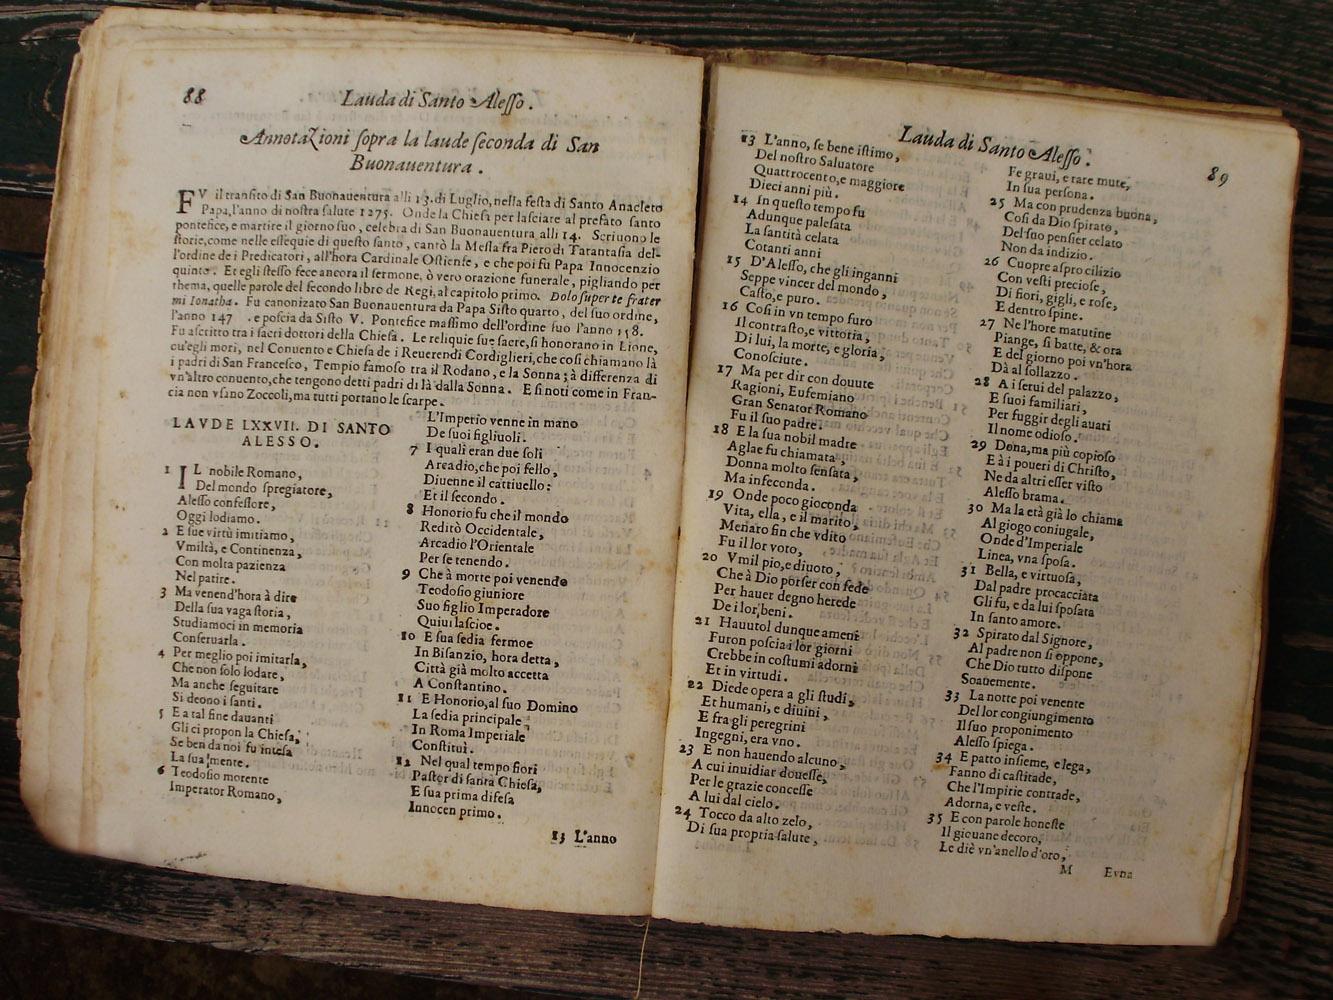 88
Lauda di Santo Alesso.
Annotazioni sopra la laude seconda di San
Buonauentura.
FV il transito di San Buonauentura alli 13. di Luglio, nella festa di Santo Anacleto
Papa, l'anno di nostra salute 1275. Onde la Chiesa per lasciare al prefato santo
pontefice, e martire il giorno suo, celebra di San Buonauentura alli 14. Scriuono le
storie, come nelle essequie di questo santo, cantò la Messa fra Piero di Tarantasia del-
l'ordine de i Predicatori, all'hora Cardinale Ostiense, e che poi fu Papa Innocenzio
quinto. Et egli stesso fece ancora il sermone, ò vero orazione funerale, pigliando per
thema, quelle parole del secondo libro de Regi, al capitolo primo. Dolo super te frater
mi Ionatha. Fu canonizato San Buonauentura da Papa Sisto quarto, del suo ordine,
l'anno 147 . e poscia da Sisto V. Pontefice massimo dell'ordine suo l'anno 158.
Fu ascritto tra i sacri dottori della Chiesa. Le reliquie sue sacre, si honorano in Lione,
cu'egli morì, nel Conuento e Chiesa de i Reuerendi Cordiglieri, che così chiamano là
i padri di San Francesco, Tempio famoso tra il Rodano, e la Sonna; à differenza di
vn'altro conuento, che tengono detti padri di là dalla Sonna. E si noti come in Fran-
cia non vsano Zoccoli, ma tutti portano le scarpe.
LAVDE LXXVII. DI SANTO
ALESSO.
1 IL nobile Romano,
Del mondo spregiatore,
Alesso confessore,
Oggi lodiamo.
2 E sue virtù imitiamo,
Vmiltà, e Continenza,
Con molta pazienza
Nel patire.
3 Ma venend'hora à dire
Della sua vaga storia,
Studiamoci in memoria
Conseruarla.
4 Per meglio poi imitarla,
Che non solo lodare,
Ma anche seguitare
Si deono i santi.
5 E a tal fine dauanti
Gli ci propon la Chiesa,
Se ben da noi fu intesa
La sua mente.
6 Teodosio morente
Imperator Romano,
L'Imperio venne in mano
De suoi figliuoli.
7 I quali eran due soli
Arcadio, che poi fello,
Diuenne il cattiuello:
Et il secondo.
8 Honorio fu che il mondo
Reditò Occidentale,
Arcadio l'Orientale
Per se tenendo.
9 Che à morte poi venendo
Teodosio giuniore
Suo figlio Imperadore
Quiui lascioe.
10 E sua sedia fermoe
In Bisanzio, hora detta,
Città già molto accetta
A Constantino.
11 E Honorio, al suo Domino
La sedia principale
In Roma Imperiale
Constituì.
12 Nel qual tempo fiori
Pastor di santa Chiesa,
E sua prima difesa
Innocen primo.
13 L'anno
Lauda di Santo Alesso.
89
13 L'anno, se bene istimo,
Del nostro Saluatore
Quattrocento, e maggiore
Dieci anni più.
14 In questo tempo fu
Adunque palesata
La santità celata
Cotanti anni
15 D'Alesso, che gli inganni
Seppe vincer del mondo,
Casto, e puro.
16 Così in vn tempo furo
Il contrasto, e vittoria,
Di lui, la morte, e gloria,
Conosciute.
17 Ma per dir con douute
Ragioni, Eufemiano
Gran Senator Romano
Fu il suo padre.
18 E la sua nobil madre
Aglae fu chiamata,
Donna molto sensata,
Ma infeconda.
19 Onde poco gioconda
Vita, ella, e il marito,
Menaro fin che vdito
Fu il lor voto,
20 Vmil pio, e diuoto,
Che à Dio porser con fede
Per hauer degno herede
De i lor beni.
21 Hauutol dunque ameni
Furon poscia i lor giorni
Crebbe in costumi adorni
Et in virtudi.
22 Diede opera a gli studi,
Et humani, e diuini,
E fra gli peregrini
Ingegni, era vno.
23 E non hauendo alcuno,
A cui inuidiar douesse,
Per le grazie concesse
A lui dal cielo.
24 Tocco da alto zelo,
Di sua propria salute,
Fe graui, e rare mute,
In sua persona.
25 Ma con prudenza buona,
Così da Dio spirato,
Del suo pensier celato
Non da indizio.
26 Cuopre aspro cilizio
Con vesti preciose,
Di fiori, gigli, e rose,
E dentro spine.
27 Ne l'hore matutine
Piange, si batte, & ora
E del giorno poi vn'hora
Dà al sollazzo.
28 A i serui del palazzo,
E suoi familiari,
Per fuggir degli auari
Il nome odioso.
29 Dona, ma più copioso
E à i poueri di Christo,
Ne da altri esser visto
Alesso brama.
30 Ma la età già lo chiama
Al giogo coniugale,
Onde d'Imperiale
Linea, vna sposa.
31 Bella, e virtuosa,
Dal padre procacciata
Gli fu, e da lui sposata
In santo amore.
32 Spirato dal Signore,
Al padre non si oppone,
Che Dio tutto dispone
Soauemente.
33 La notte poi venente
Del lor congiungimento
Il suo proponimento
Alesso spiega.
34 E patto insieme, e lega,
Fanno di castitade,
Che l'Impirie contrade,
Adorna, e veste.
35 E con parole honeste
Il giouane decoro,
Le diè vn'anello d'oro,
M
E vna